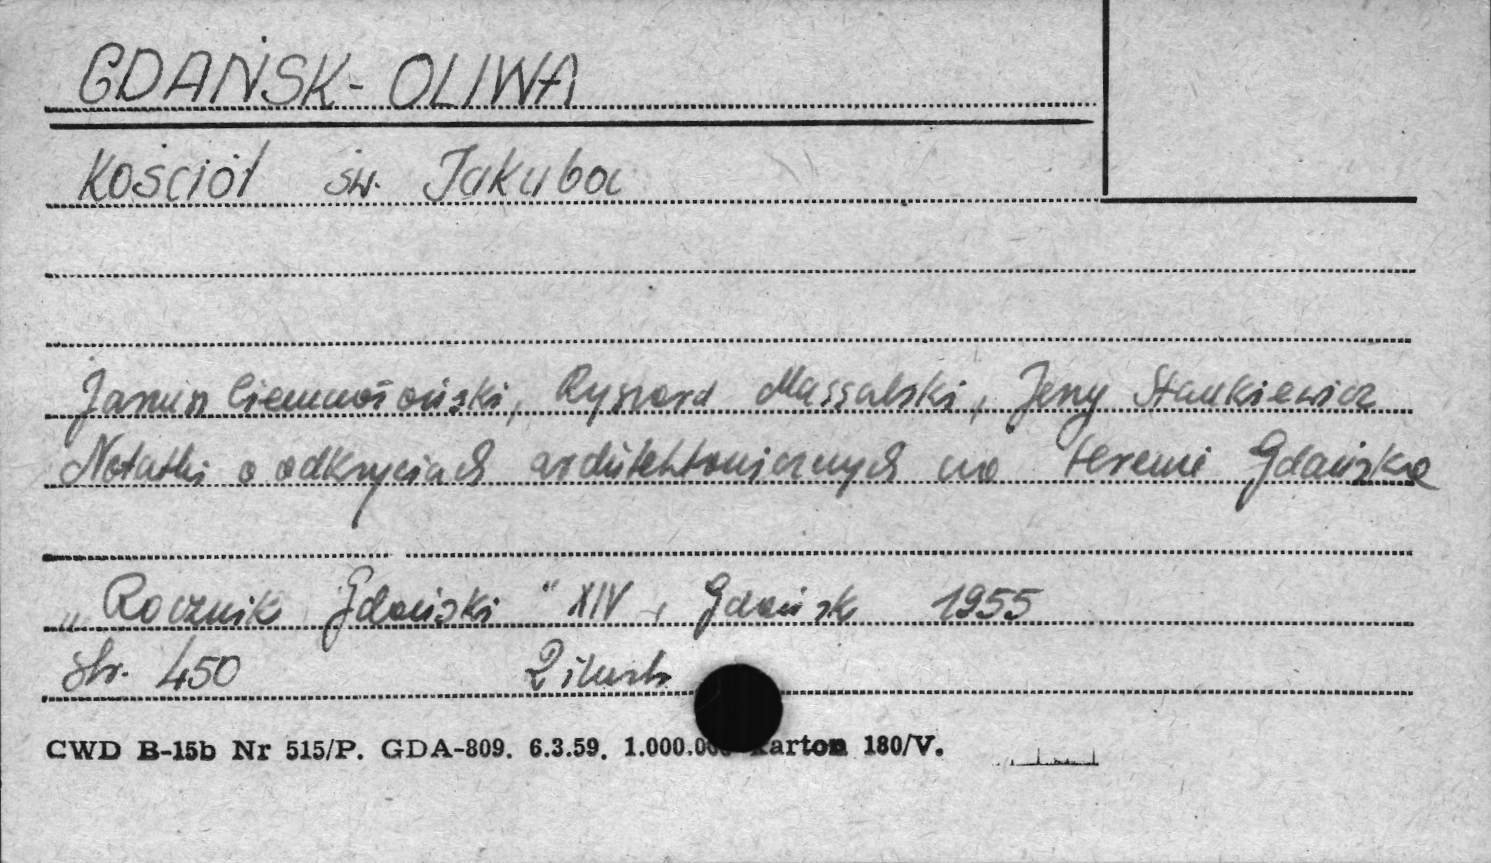 GDAŃSK - OLIWA
Kościół św. Jakuba
Janusz Ciemnołoński, Ryszard Massalski, Jerzy Stankiewicz
Notatki o odkryciach architektonicznych na terenie Gdańska
„Rocznik Gdański" XIV, Gdańsk 1955
str. 450 2 ilustr.
CWD B-15b Nr 515/P. GDA-809. 6.3.59. 1.000.000 Karton 180/V.